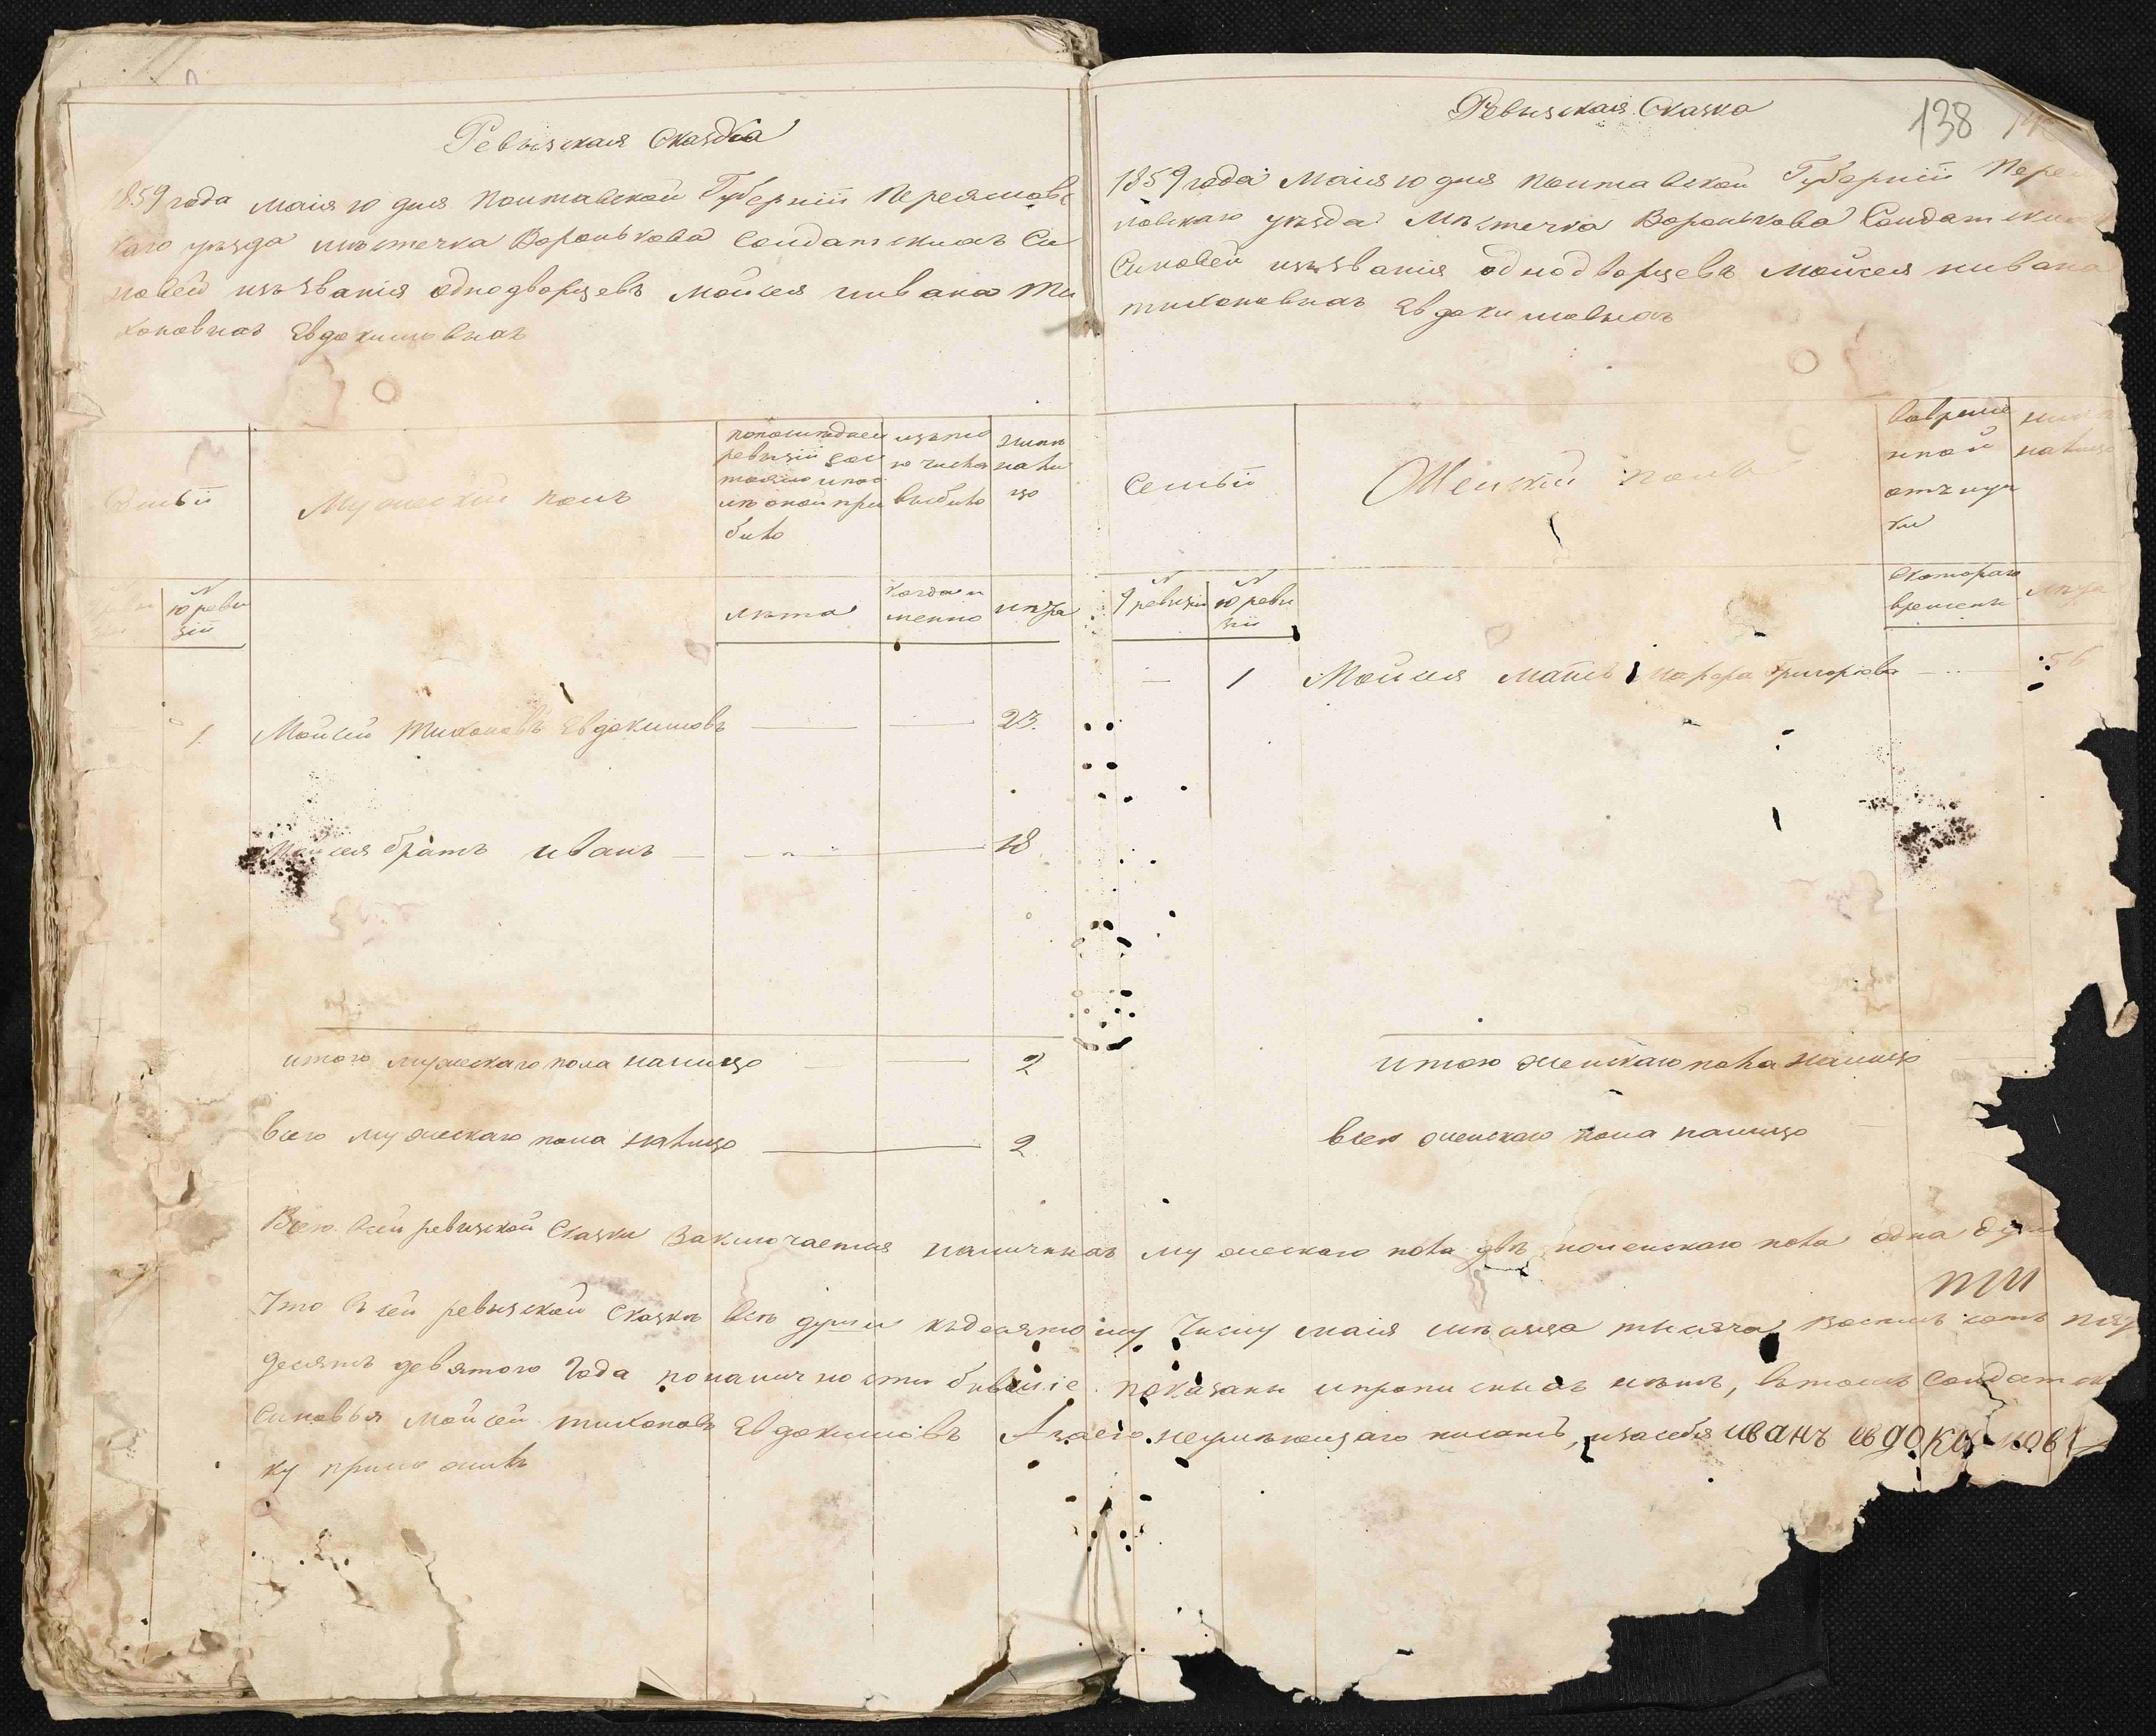 Ревизская Сказка
1859 года маія 10 дня Полтавской Губерніи Переяслов
каго уѣзда мѣстечка Воронькова Солдатскихъ Си
новей изъ званія однодворцевъ Мойсея и ивана Ти
хоновыхъ Евдокимовыхъ
Семьи
Мужескій полъ
ревизіи
прибыло
изъ того числа выбыло
нынѣ на лицо
10 ревизіи
лѣта
когда именно
лѣта
1. Мойсей Тихоновъ Евдокимовъ 23.
Мойсея братъ иванъ 18
итого мужескаго пола налицо 2
всего мужескаго пола налицо 2
Ревизская Сказка
138
1859 года маія 10 дня Полтавской Губерніи Перея
ловскаго уѣзда Мѣстечка Воронькова Солдатски
Синовей изъ званія однодворцевъ Мойсея и ивана
тихоновыхъ Евдокимовыхъ
Семьи
Женскій полъ
во временной отлучки
налицо
№ 9 ревизіи
№ 10 ревизіи
Скотораго времени
лѣта
1 Мойсея мать Марфа Григорьева 56
итого женскаго пола налицо
всего женскаго пола налицо
Всего в сей ревизской Сказки Заключается наличныхъ мужескаго пола двѣ и женскаго пола одна
Что в сей ревизской Сказкѣ всѣ души къ десятому Числу маія мѣсяца тысяча восемь сотъ пять
десятъ девятого Года по наличности бывшіе показаны и прописныхъ нѣтъ, в томъ Солдатск
Синовья Мойсей тихоновъ Евдокимовъ А за его неумѣющаго писать, и за себя иванъ Евдокимовъ
ку приложилъ